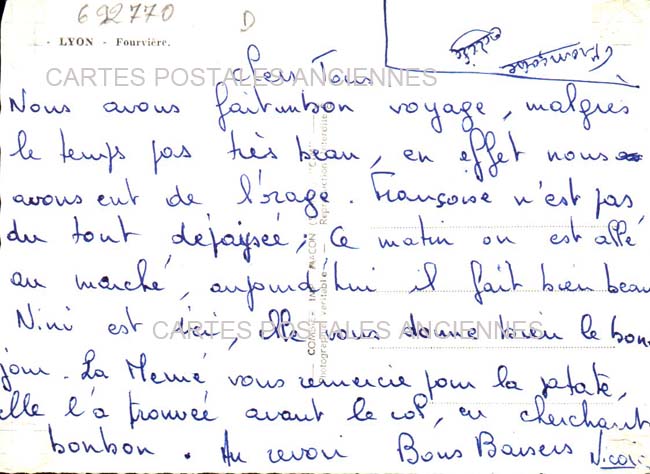 692770
D
- LYON - Fourvière.
Françoise
CARTES POSTALES ANCIENNES
Chers Tous
Nous avons fait un bon voyage, malgrés
le temps pas très beau, en effet nous
avons eut de l'orage. Françoise n'est pas
du tout dépaysée; Ce matin on est allé
au marché, aujourd'hui il fait bien beau
Nini est ici, elle vous donne bien le bon
CARTES POSTALES ANCIENNES
jour. La Mémé vous remercie pour la patate,
elle l'a trouvée avant le col, en cherchant
bonbon. Au revoir Bons Baisers
COMBIER IMP. MACON